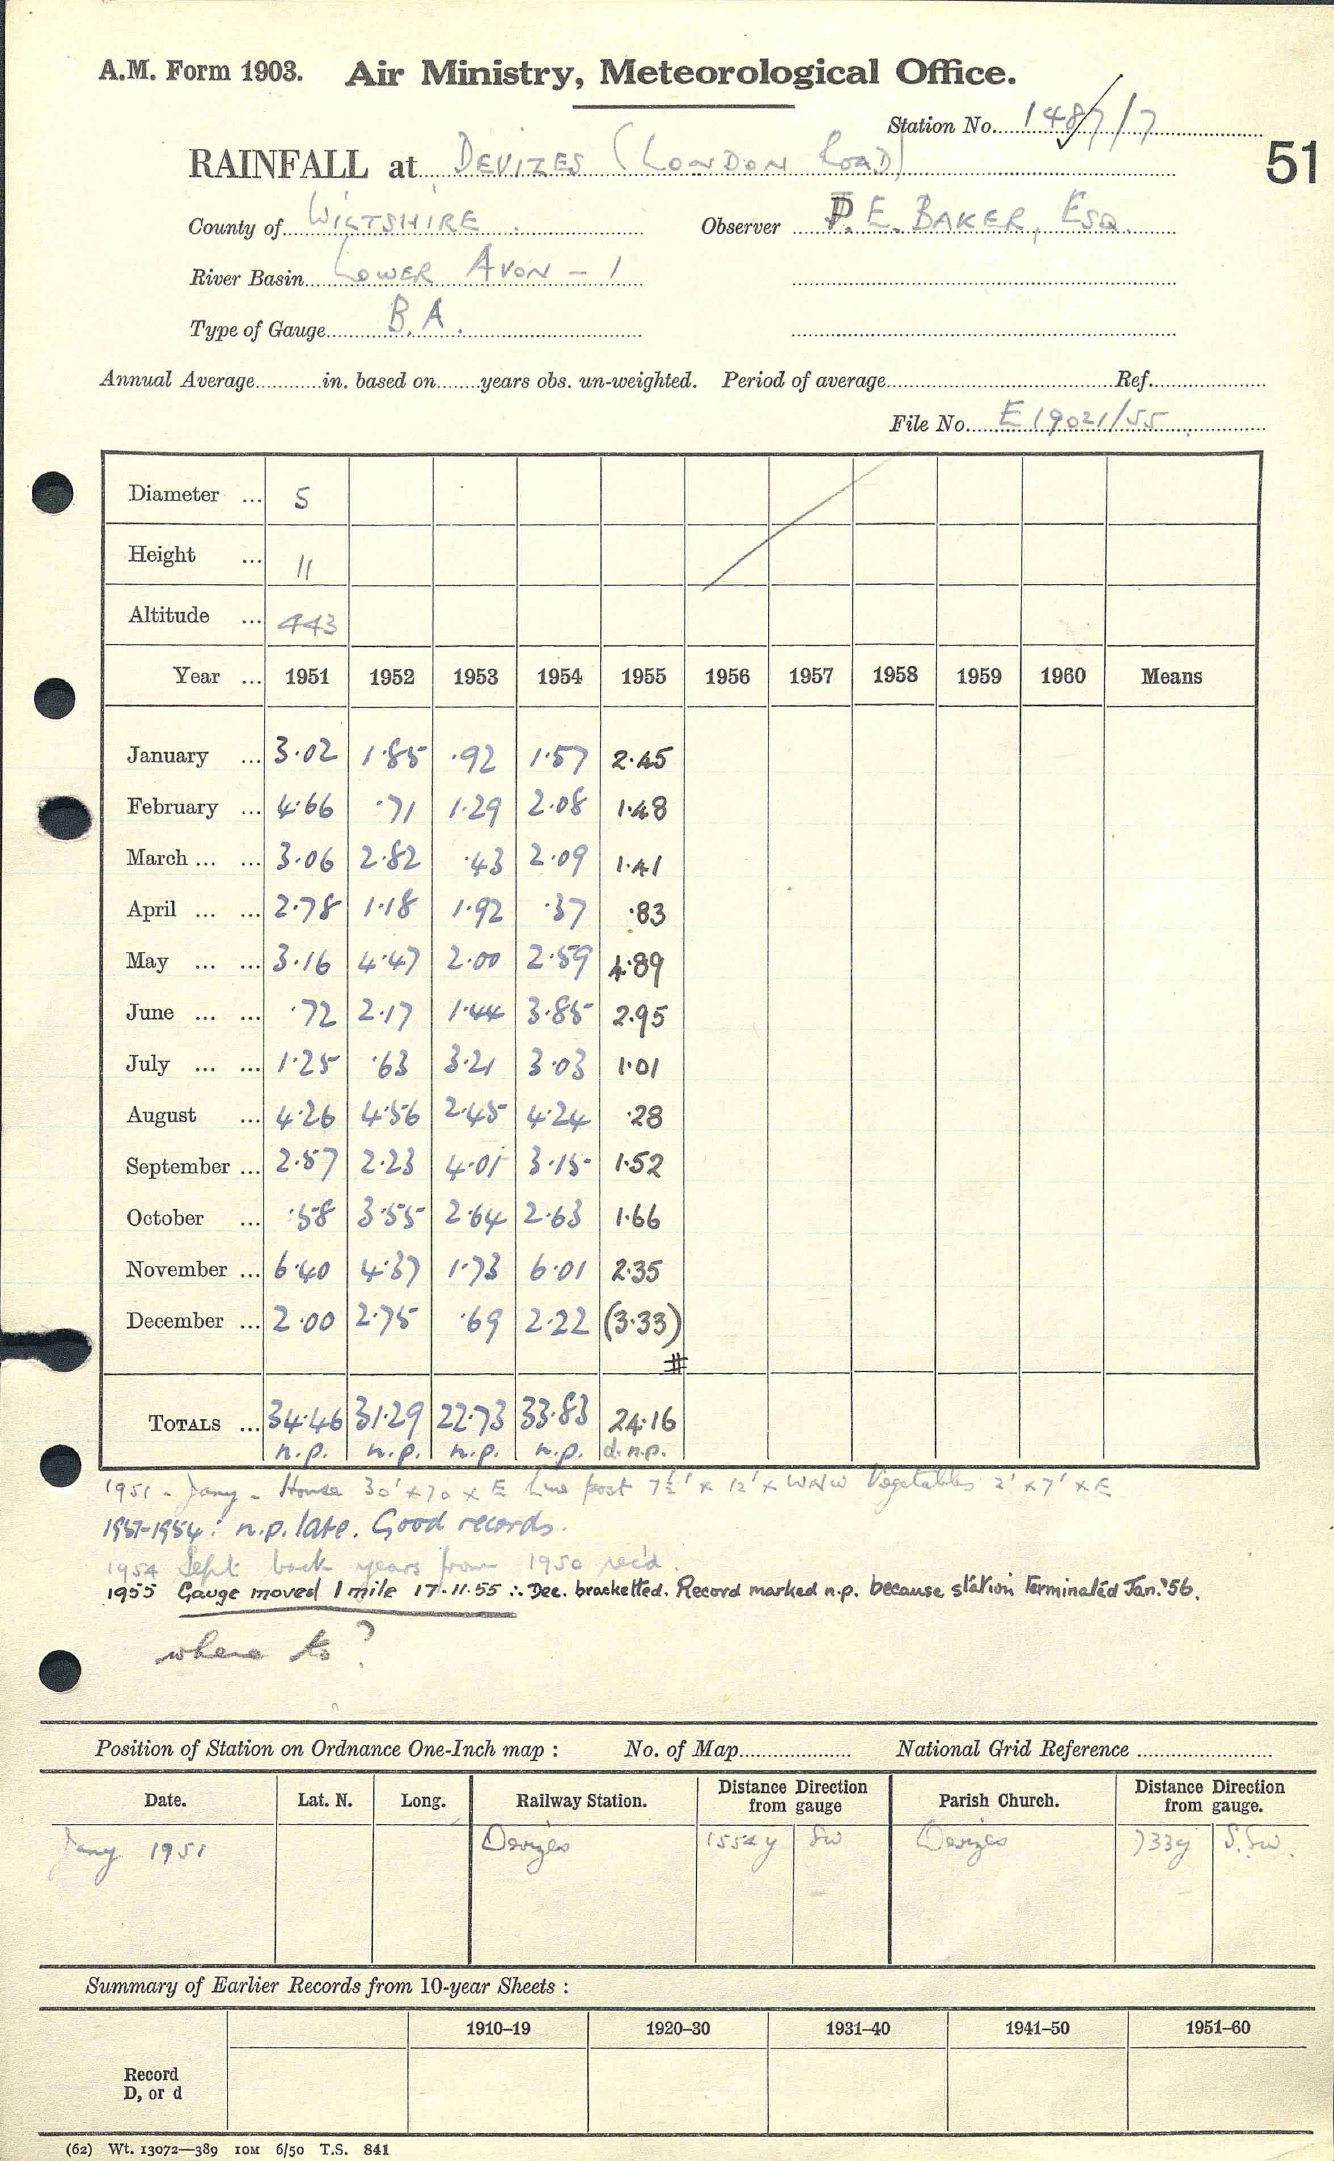 A.M. Form 1903. Air Ministry, Meteorological Office.
Station No. 1487/7
RAINFALL at DEVIZES (LONDON ROAD)
51
County of WILTSHIRE Observer P.E. BAKER, ESQ.
River Basin LOWER AVON - 1
Type of Gauge B.A.
Annual Average in. based on years obs. un-weighted. Period of average Ref.
File No. E19021/55
Diameter ... 5
Height ... 11
Altitude ... 443
Year ... 1951 1952 1953 1954 1955 1956 1957 1958 1959 1960 Means
January ... 3.02 1.85 .92 1.57 2.45
February ... 4.66 .71 1.29 2.08 1.48
March ... ... 3.06 2.82 .43 2.09 1.41
April ... ... 2.78 1.18 1.92 .37 .83
May ... ... 3.16 4.47 2.00 2.59 4.89
June ... ... .72 2.17 1.44 3.85 2.95
July ... ... 1.25 .63 3.21 3.03 1.01
August ... 4.26 4.56 2.45 4.24 .28
September ... 2.57 2.23 4.01 3.15 1.52
October ... .58 3.55 2.64 2.63 1.66
November ... 6.40 4.37 1.73 6.01 2.35
December ... 2.00 2.75 .69 2.22 (3.33)
#
TOTALS ... 34.46 31.29 22.73 33.83 24.16
n.p. n.p. n.p. n.p. d.n.p.
1951 - Jany - House 30' x 70 x E Line post 7½' x 12' x WNW Vegetables 2' x 7' x E
1951-1954: n.p. late. Good records.
1954 Sept back years from 1950 rec'd.
1955 Gauge moved 1 mile 17.11.55 ∴ Dec. bracketted. Record marked n.p. because station terminated Jan. '56.
where to?
Position of Station on Ordnance One-Inch map : No. of Map National Grid Reference
Date. Lat. N. Long. Railway Station. Distance Direction from gauge Parish Church. Distance Direction from gauge.
Jany 1951 Devizes 1554y SW Devizes 733y S.SW.
Summary of Earlier Records from 10-year Sheets :
1910–19 1920–30 1931–40 1941–50 1951–60
Record
D, or d
(62) Wt. 13072—389 10M 6/50 T.S. 841